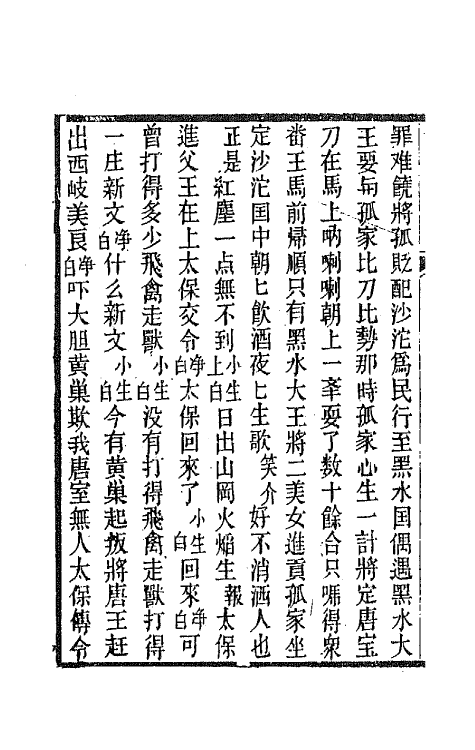 罪难饒將孤貶配沙沱爲民行至黑水国偶遇黑水大
王要与孤家比刀比勢那時孤家心生一計將定唐宝
刀在馬上吶喇喇朝上一举耍了数十餘合只嚇得衆
番王馬前帰順只有黑水大王將二美女進貢孤家坐
定沙沱国中朝匕飲酒夜匕生歌笑介好不消洒人也
正是紅塵一点無不到小生上白日出山岡火焔生報太保
進父王在上太保交令净白太保回來了小生白回來净白可
曾打得多少飛禽走獸小生白没有打得飛禽走獸打得
一庄新文净白什么新文小生白今有黄巢起叛將唐王赶
出西岐美良净白吓大胆黄巢欺我唐室無人太保傳令